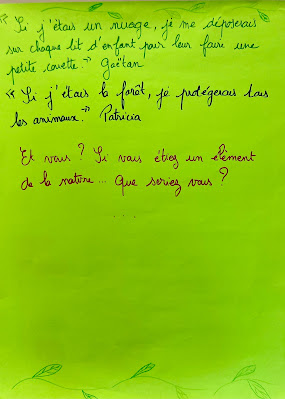 "Si j'étais un nuage, je me déposerais
sur chaque lit d'enfant pour leur faire une
petite couette." Gaëtan
"Si j'étais la forêt, je protégerais tous
les animaux." Patricia
Et vous ? Si vous étiez un élément
de la nature... Que seriez vous ?
...